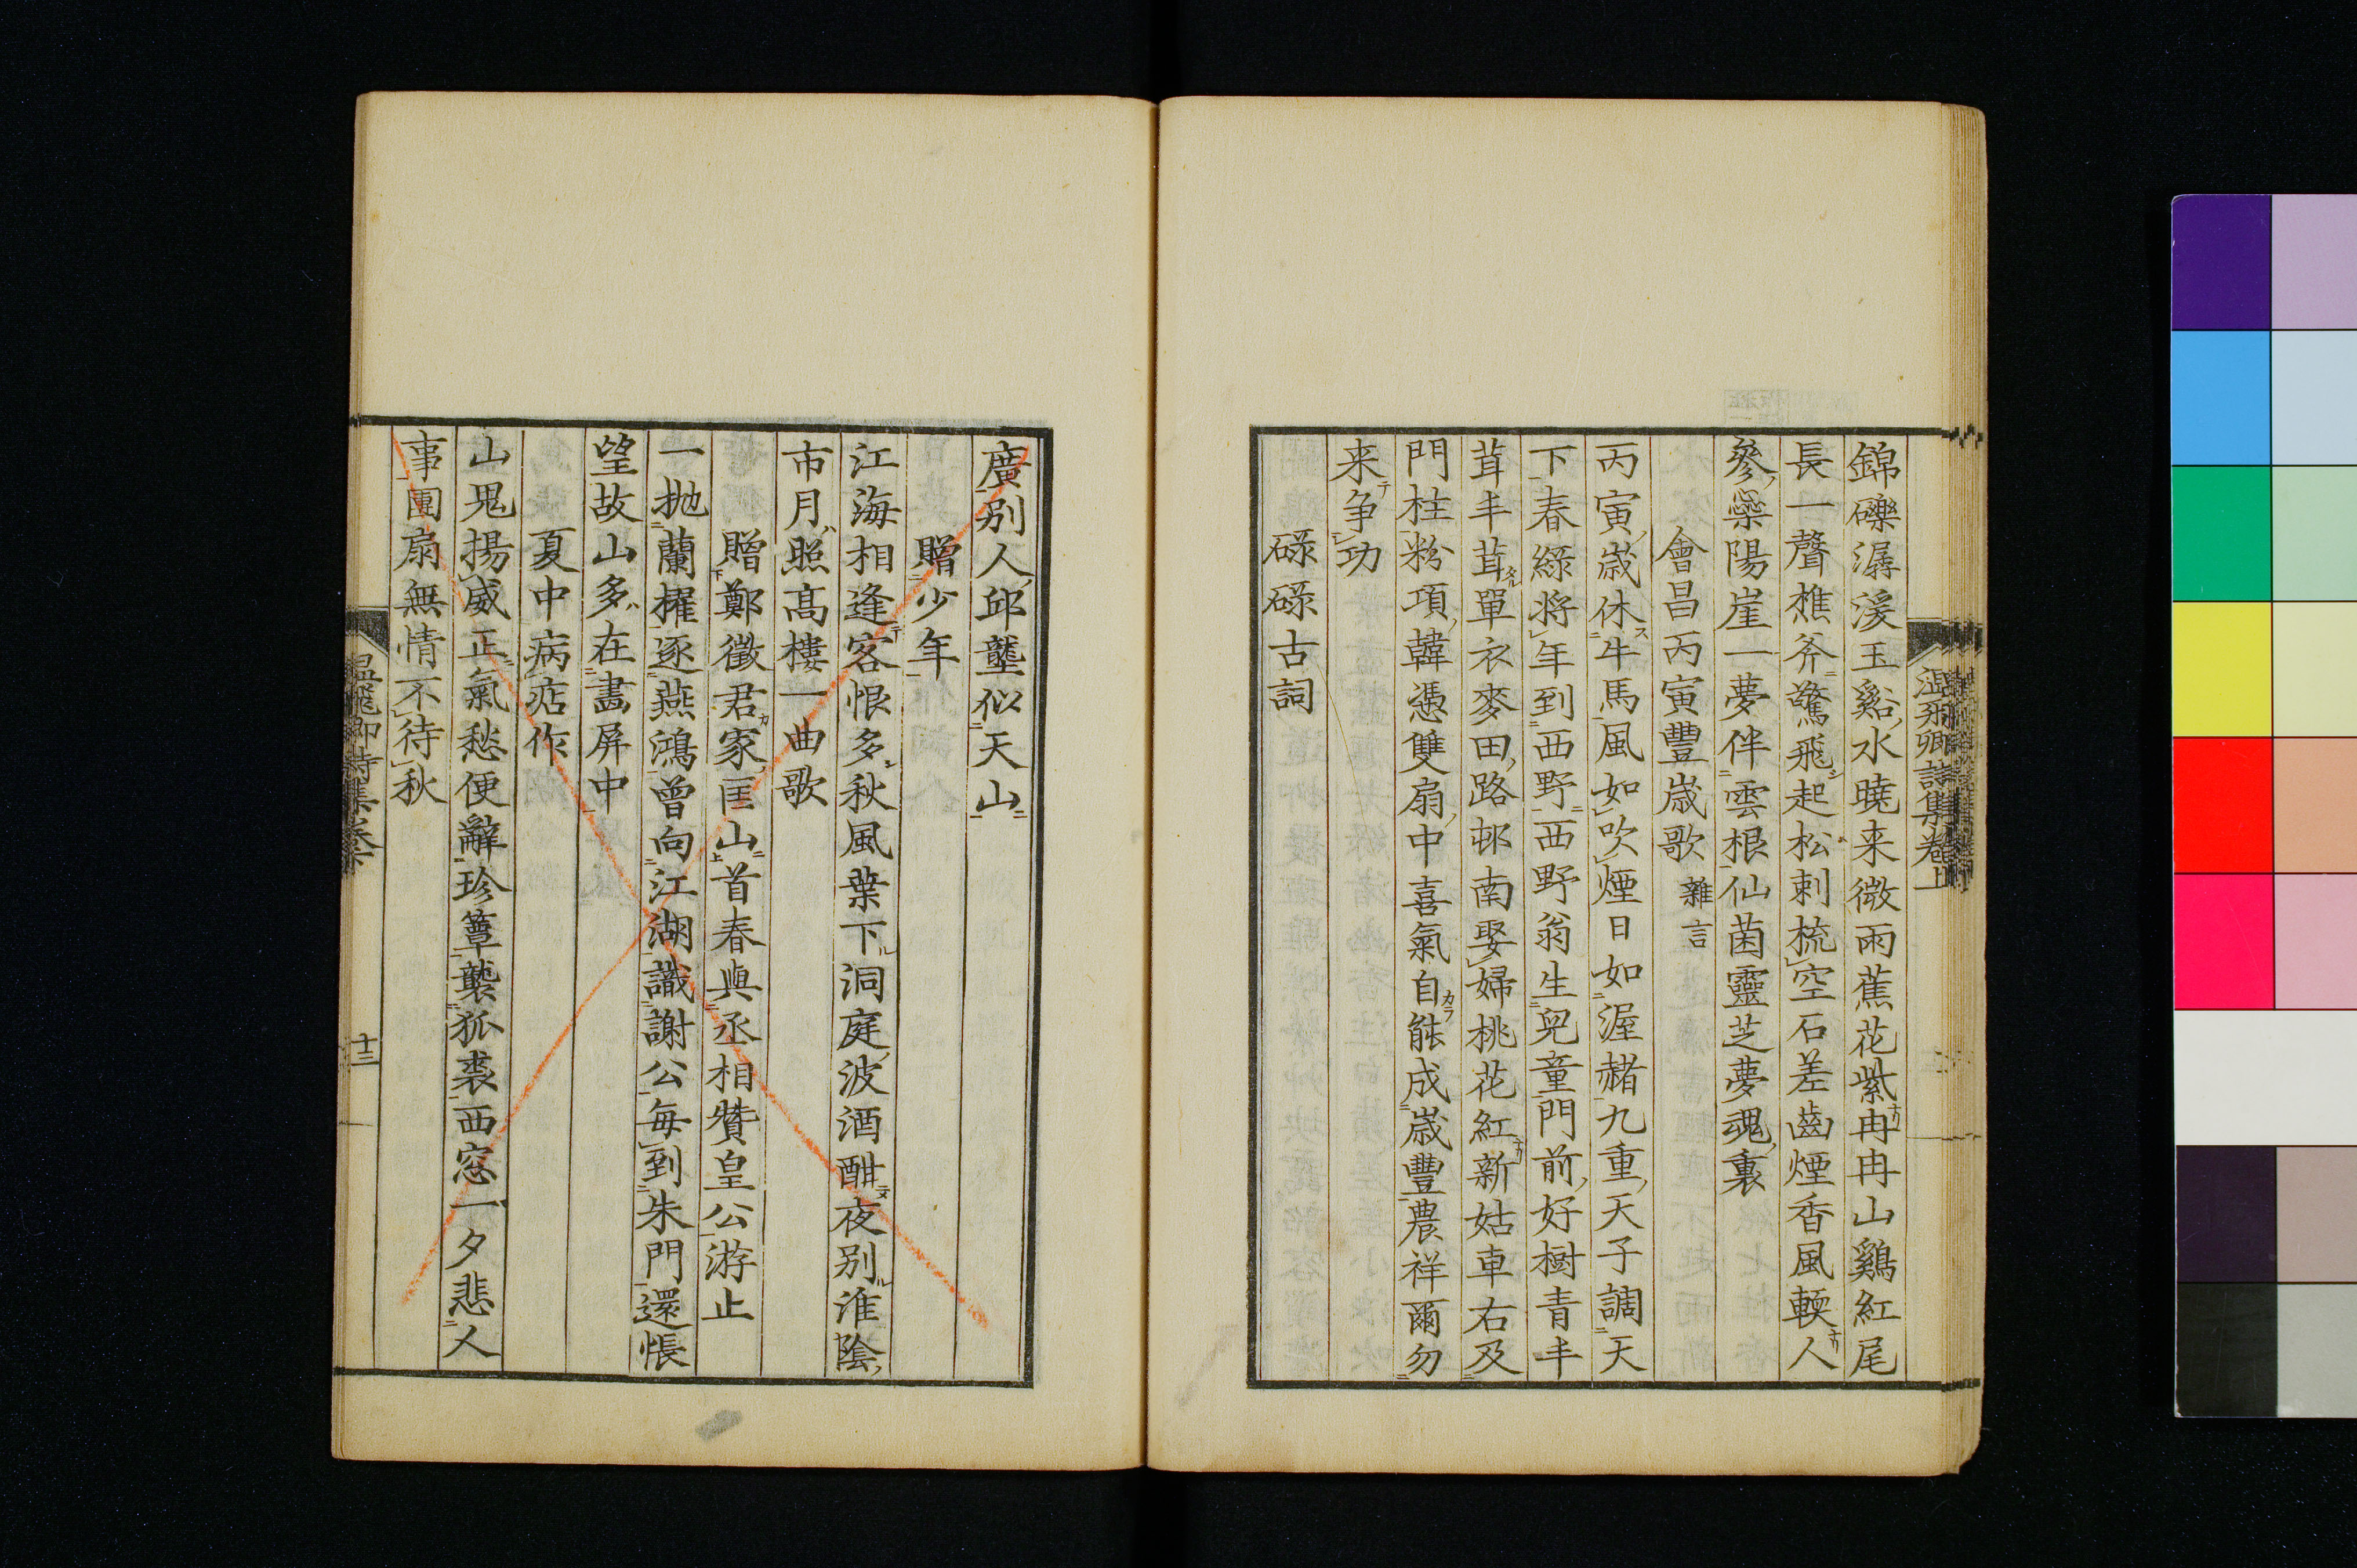 溫飛卿詩集卷上
錦礫潺湲玉谿水曉来微雨蕉花紫冉冉山鷄紅尾
長一聲樵斧驚飛起松刺梳空石差齒煙香風輭人
參蘂陽崖一夢伴雲根仙菌靈芝夢魂裏
會昌丙寅豐歲歌 雜言
丙寅歲休牛馬風如吹煙日如渥赭九重天子調天
下春綠將年到西野西野翁生兒童門前好樹青丰
茸丰茸單衣麥田路邨南娶婦桃花紅新姑車右及
門柱粉項韓憑雙扇中喜氣自能成歲豐農祥爾勿
来争功
碌碌古詞
廣別人邱壟似天山
贈少年
江海相逢客恨多秋風葉下洞庭波酒酣夜別淮陰
市月照高樓一曲歌
贈鄭徵君家匡山首春與丞相贊皇公游止
一抛蘭櫂逐燕鴻曾向江湖識謝公每到朱門還悵
望故山多在畵屏中
夏中病痁作
山鬼揚威正氣愁便辭珍簟襲狐裘西窓一夕悲人
事團扇無情不待秋
溫飛卿詩集卷下
十三